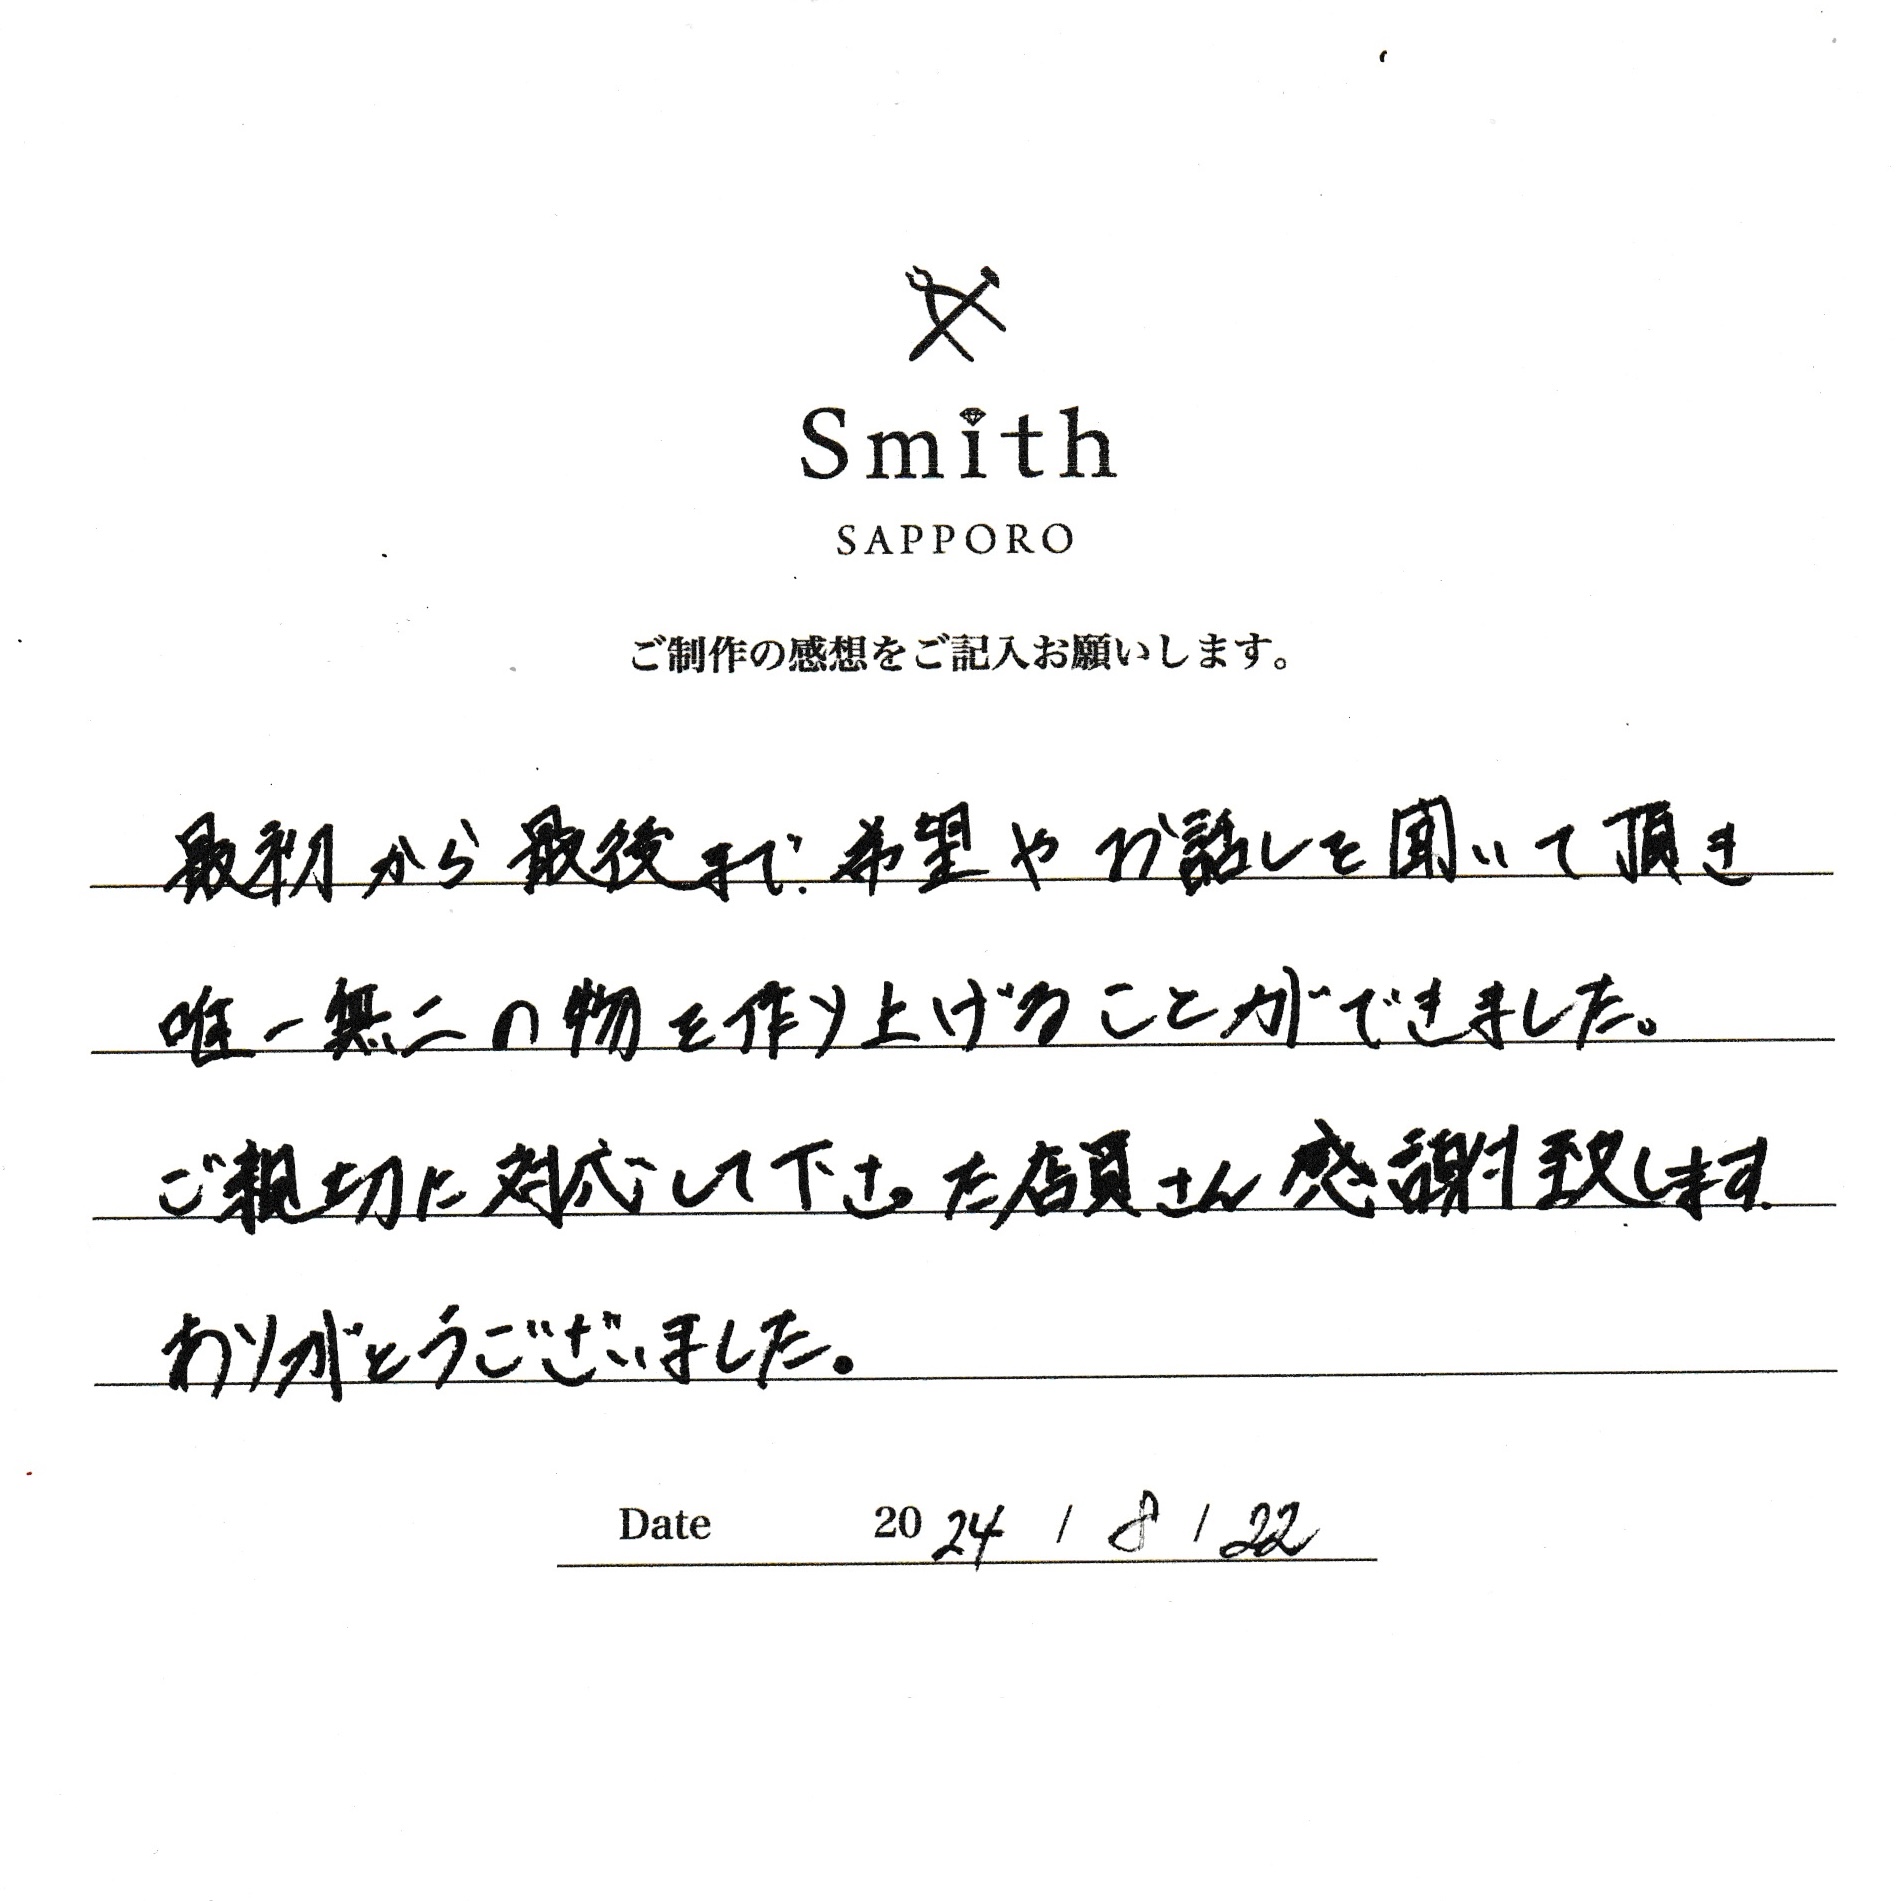 Smith
SAPPORO
ご制作の感想をご記入お願いします。
最初から最後まで、希望やお話しを聞いて頂き
唯一無二の物を作り上げることができました。
ご親切に対応して下さった店員さん感謝致します。
ありがとうございました。
Date 2024 / 8 / 22